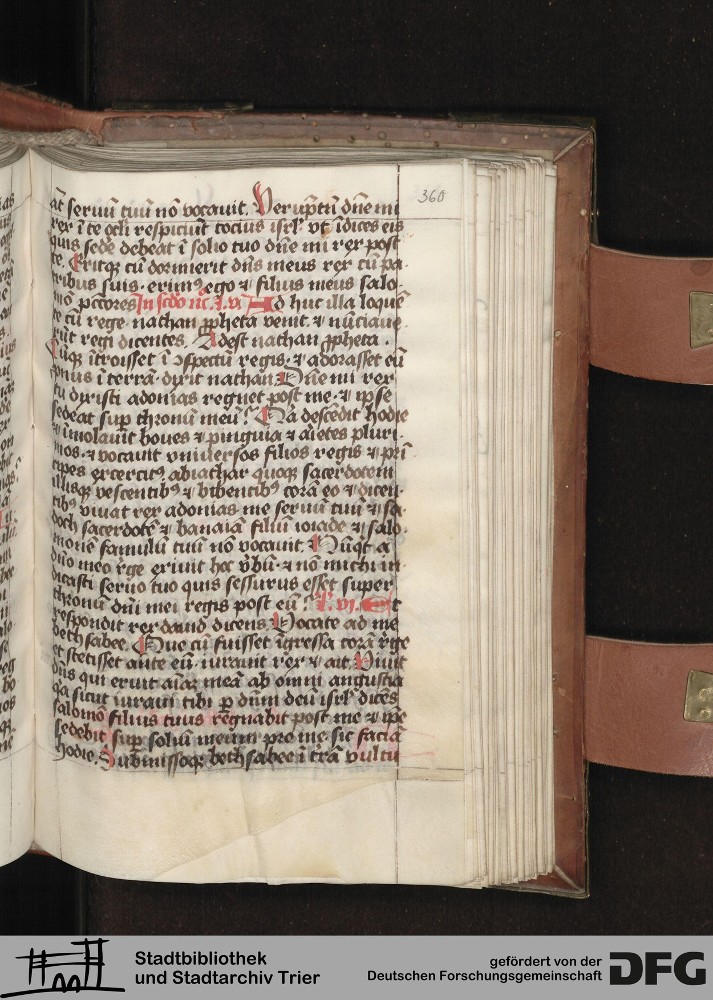 360
at seruū tuū nō vocauit. Verūptū dn̄e mi
rex ī te ocli respiciūt tocius isrl' vt īdices eis
quis sede debeat ī solio tuo dn̄e mi rex post
te. Eritqꝫ cū dormierit dn̄s meus rex cū pa-
tribus suis. erimꝰ ego ⁊ filius meus salo-
mō pctores In scd̄o nc̄. l. v. Ad huc illa loquē
te cū rege nathan ꝓpheta venit. ⁊ nūciaue
rūt regi dicentes. Adest nathan ꝓpheta.
Cūqꝫ ītroisset ī ɔspectū regis. ⁊ adorasset eū
pnus ī terrā. dixit nathan. Dn̄e mi rex
tu dixisti adonias regnet post me. ⁊ ip̄e
sedeat sup thronū meū? Qa descēdit hodie
⁊ īmolauit boues ⁊ pinguia ⁊ aīetes pluri-
mos. ⁊ vocauit vniuersos filios regis ⁊ prī
cipes exercitꝰ. abiathar quoqꝫ sacerdotem
illisqꝫ vescentibꝰ ⁊ bibentibꝰ corā eo ⁊ dicen-
tibꝰ viuat rex adonias. me seruū tuū ⁊ sa-
doch sacerdotē ⁊ banaiā filiū ioiade ⁊ salo-
monē famulū tuū nō vocauit. Nūqd a
dn̄o meo rege exiuit hoc v̄bū. ⁊ nō michi in-
dicasti seruo tuo quis sessurus esset super
thronū dn̄i mei regis post eū? L. vi. Et
respondit rex dauid dicens. Vocate ad me
bethsabee. Que cū fuisset īgressa corā rege
et stetisset ante eū. iurauit rex ⁊ ait. Viuit
dn̄s qui eruit aīaꝫ meā ab omni angustia
qa sicut iuraui tibi ꝑ dn̄m deū isrl' dicēs
salomō filius tuus regnabit post me ⁊ ip̄e
sedebit sup soliū meum pro me. sic faciā
hodie. Submissoqꝫ bethsabee ī t̄rā vultu
Stadtbibliothek
und Stadtarchiv Trier
gefördert von der
Deutschen Forschungsgemeinschaft
DFG